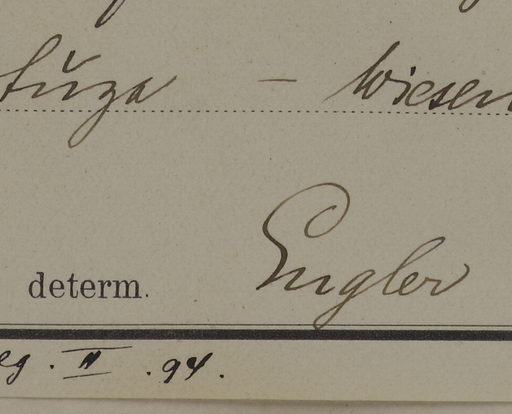 tŭza – Wiesen
determ. Engler
eg. II. 94.